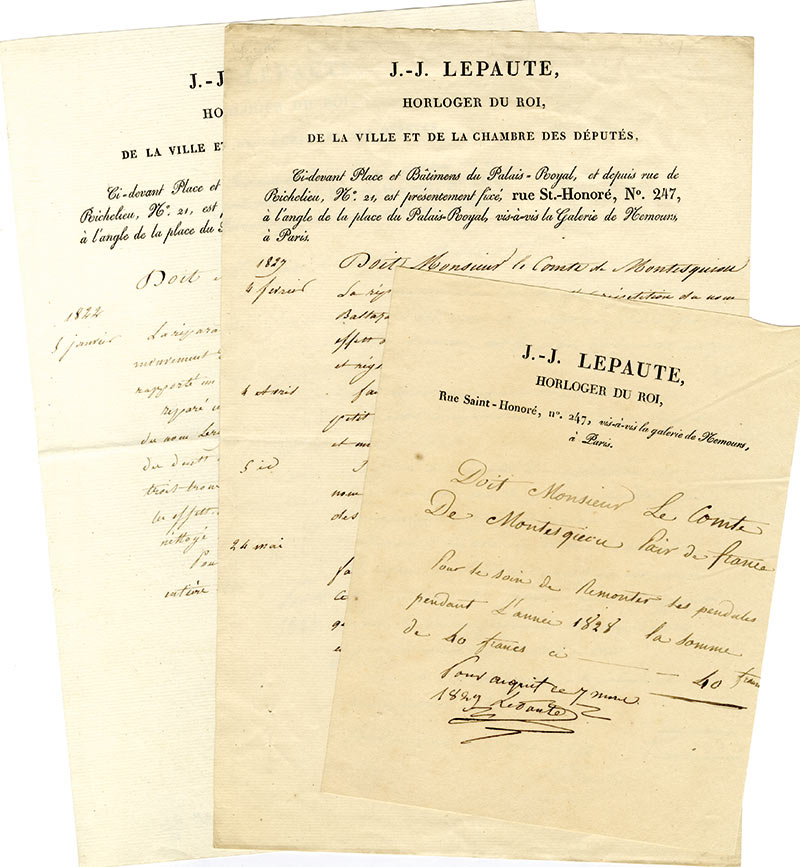 J.-J
HO
DE LA VILLE ET
Ci-devant Place et
Richelieu, N.º 21, est
à l'angle de la place du
Doit
1822
5 janvier La répara
mouvement
rapporté un
réparé
du nom
du
troit
les effets
néttoyé
Pour
entière
J.-J. LEPAUTE,
HORLOGER DU ROI,
DE LA VILLE ET DE LA CHAMBRE DES DÉPUTÉS,
Ci-devant Place et Bâtimens du Palais-Royal, et depuis rue de
Richelieu, N.º 21, est présentement fixé, rue St.-Honoré, Nº. 247,
à l'angle de la place du Palais-Royal, vis-à-vis la Galerie de Nemours,
à Paris.
1827 Doit Monsieur le Comte de Montesquiou
4 fevrier La rép répétition du nom
Baltaza
effet
et rég
4 Avril
petit
et
5 id
nom
des
24 mai
J.-J. LEPAUTE,
HORLOGER DU ROI,
Rue Saint-Honoré, nº. 247, vis-à-vis la galerie de Nemours,
à Paris.
Doit Monsieur Le Comte
De Montesqieou Pair de france
Pour le soin de Remonter ses pendules
pendant L'année 1828 la somme
de 40 francs ci — — 40 francs
Pour acquit ce 7 mars
1829 Lepaute